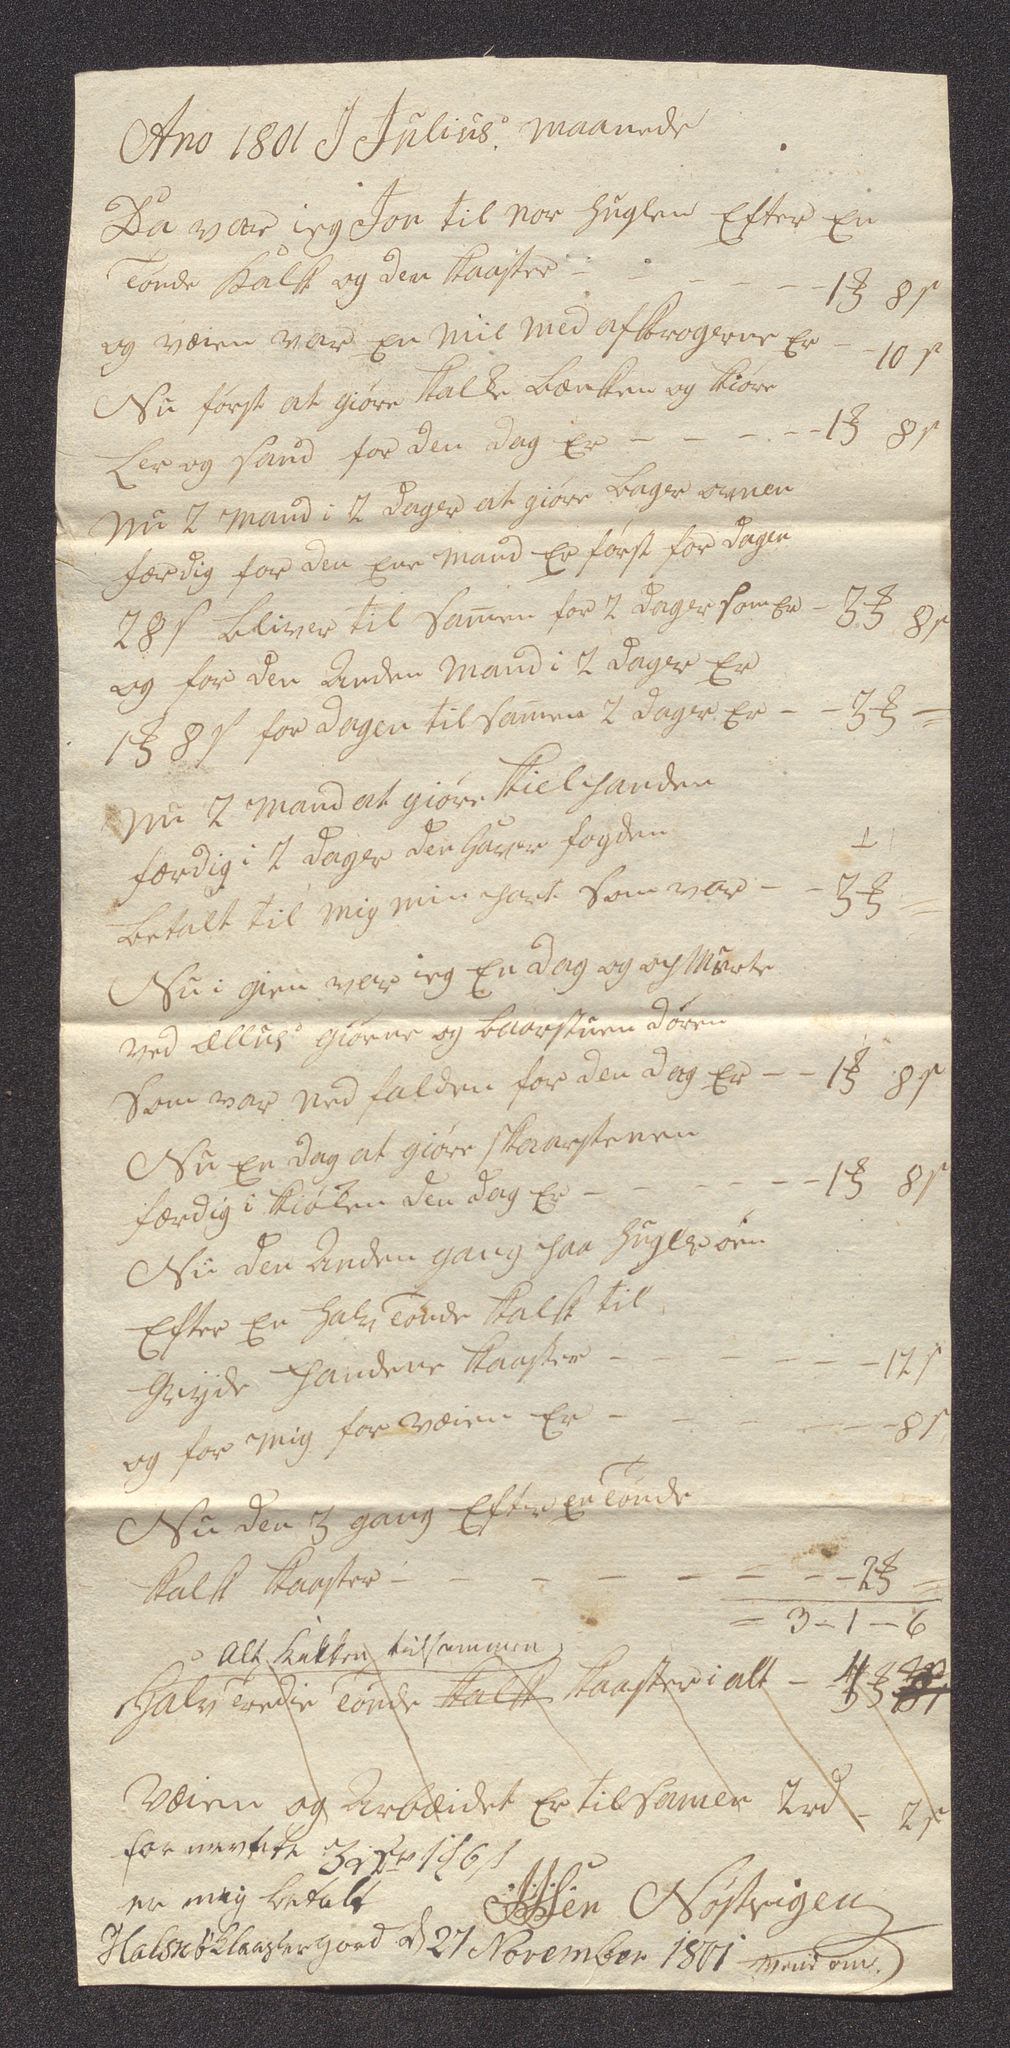 Ano 1801 J Julius: maaned
Da var ieg Jon til nor huglen Efter En
Tønde Kalk og den kaaster - - - - - - 1 ℔ 8 s
og veien var En mil med afkrogerne Er - - 10 s
Nu først at giøre kalk bænken og kiøre
Ler og sand for den dag Er - - - - - 1 ℔ 8 s
Nu 2 mand i 2 dager at giøre bager ovnen
færdig for den Ene mand Er først for dagen
28 s bliver til samen for 2 dager som Er - 3 ℔ 8 s
og for den Anden mand i 2 dager Er
1 ℔ 8 s for dagen til samen 2 dager Er - - 3 ℔ =
Nu 2 mand at giøre kiel panden
færdig i 2 dager den haver fogden
betalt til mig min part som var - - 3 ℔ =
Nu i gien var ieg En dag og op Murte
ved giørne og baarstuen døren
som var ned falden for den dag Er - - 1 ℔ 8 s
Nu En dag at giøre skaarstenen
færdig i kiøken den dag Er - - - - - - 1 ℔ 8 s
Nu den Anden gang paa hugleøen
Efter En halv Tønde kalk til
Gryde pandene kaaster - - - - - - - 12 s
og for mig for veien Er - - - - - - 8 s
Nu den 3 gang Efter En Tønde
kalk kaaster - - - - - = - - 2 ℔ =
= 3 - 1 - 6
Alt tilsammen
Halv Tredie Tønde kalk kaaster i alt - 4 ℔
Veien og Arbeidet Er tilsamen 2 rd - 2 s
for nevnte 3 rdr 1 ℔ 6 s
er mig betalt
Nøstvigen
Halsnøe Klaastergord d 27 November 1801 vend om.